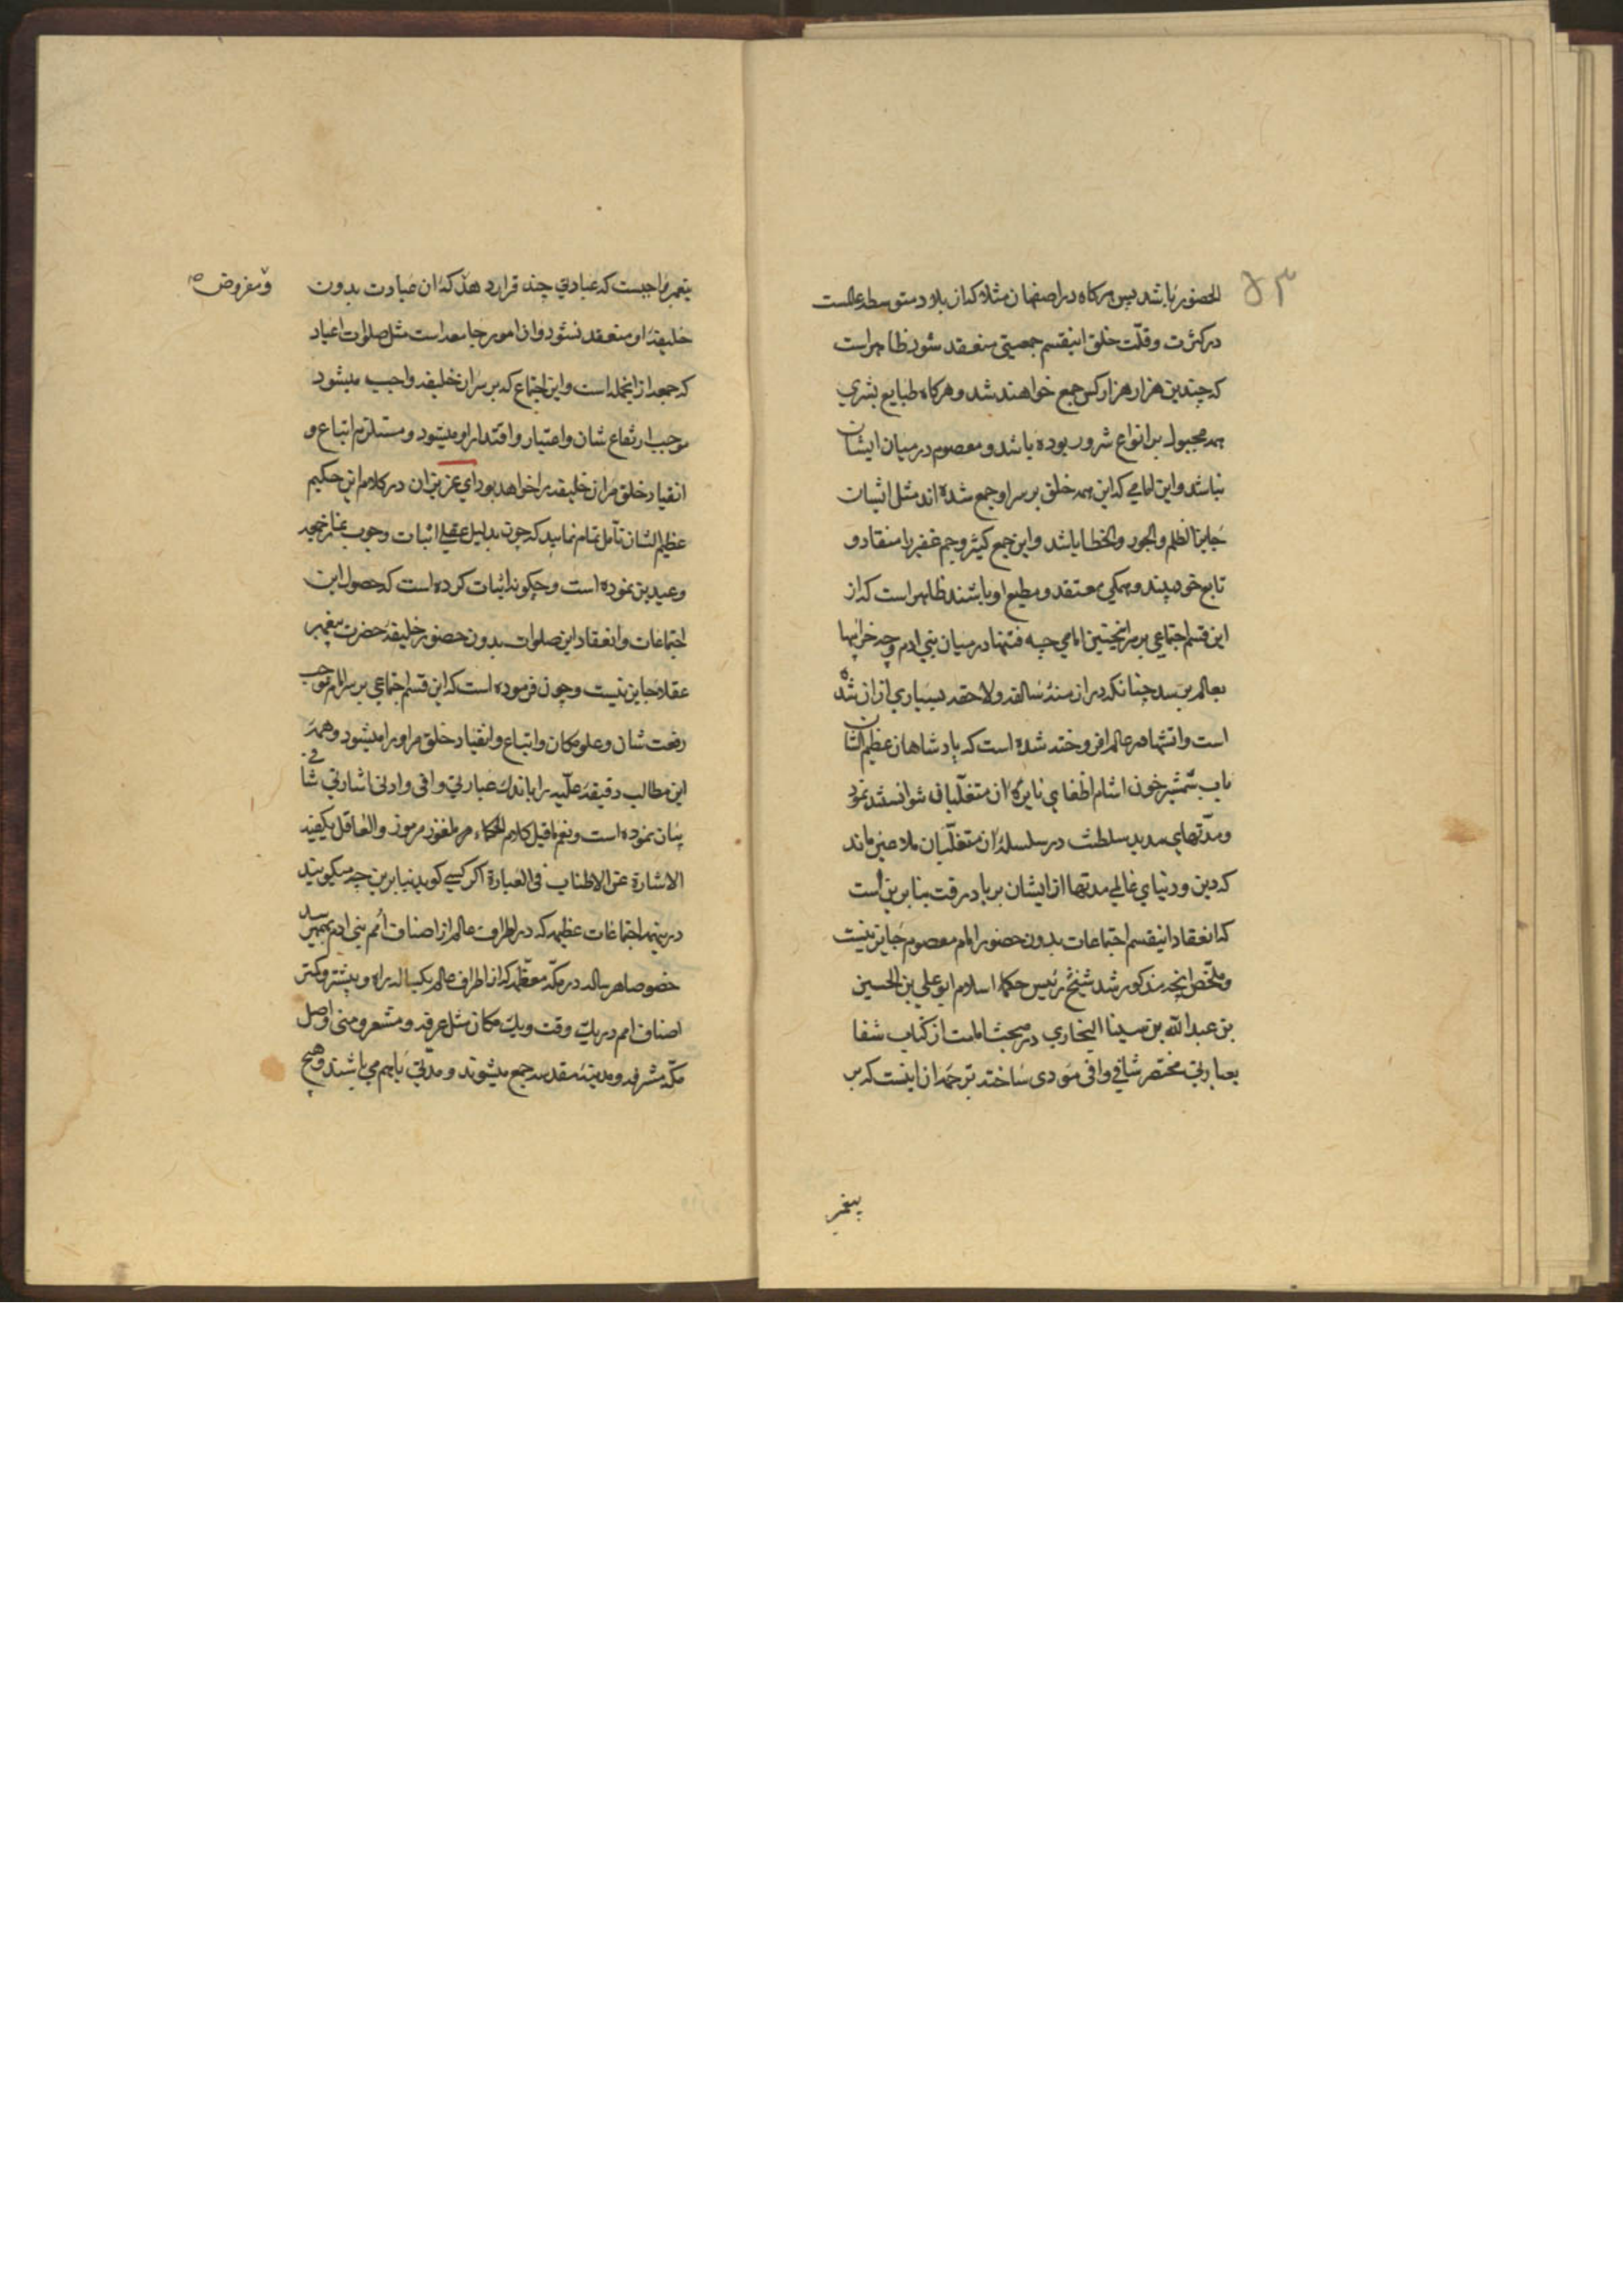 ۵۳
الحضور باشد پس هرکاه در اصفهان مثلا که از بلاد متوسطه عالمست
در کثرت و قلّت خلق اینقسم جمعیتی منعقد شود ظاهر است
که چندین هزار هزار کس جمع خواهند شد و هرکاه طبایع بشری
همه مجبول بر انواع شرور بوده باشد و معصوم در میان ایشان
نباشد و این امامی که این همه خلق بر سر او جمع شده اند مثل ایشان
جایز الظلم والجور والخطا باشد و این جمع کثیر و جم غفیر را منقاد و
تابع خود بیند و همکی معتقد و مطیع او باشند ظاهر است که از
این قسم اجتماعی بر سر اینچنین امامی چه فتنها در میان بنی ادم و چه خرابیها
بعالم برسد چنانکه در ازمنهٔ سالفه و لاحقه بسیاری از ان شده
است و اتشها در عالم افروخته شده است که پادشاهان عظیم الشان
باب شمشیر خون اشام اطفای نایرهٔ ان متغلّبان نتوانستند نمود
و مدّتهای مدید سلطنت در سلسلهٔ ان متغلّبان ملاعین ماند
که دین و دنیای عالمی مدتها از ایشان بر باد رفت بنابرین است
که انعقاد اینقسم اجتماعات بدون حضور امام معصوم جایز نیست
و ملخّص انچه مذکور شد شیخ رئیس حکماء اسلام ابوعلی بن الحسین
بن عبدالله بن سینا البخاری در مبحث امامت از کتاب شفا
بعبارتی مختصر شافی وافی مؤدی ساخته ترجمه ان اینست که بر
پیغمبر
پیغمبر واجبست که عبادتی چند قرار دهد که ان عبادت بدون
و مفروض
خلیفهٔ او منعقد نشود و ان امور جامعه است مثل صلوات اعیاد
که جمعه از انجمله است و این اجتماع که بر سر ان خلیفه واجب میشود
موجب ارتفاع شان و اعتبار و اقتدار او میشود و مستلزم اتباع و
انقیاد خلق مر ان خلیفه را خواهد بود ای عزیزان در کلام این حکیم
عظیم الشان تامل تمام نمایید که چون بدلیل عقلی اثبات وجوب نماز جمعه
و عیدین نموده است و چکونه اثبات کرده است که حصول این
اجتماعات و انعقاد این صلوات بدون حضور خلیفهٔ حضرت پیغمبر
عقلا جایز نیست و چون فرموده است که این قسم اجتماعی بر سر امام موجب
رفعت شان و علو مکان و اتباع و انقیاد خلق مر او را میشود و همهٔ
این مطالب دقیقهٔ علّیه را باندک عبارتی وافی و ادنی اشارتی شافی
بیان نموده است و نعم ما قیل کلام الحکماء مرملغوز مرموز والعاقل یکفیه
الاشارة عن الاطناب فی العبارة اکر کسی کوید بنابرین چه میکویید
درینهمه اجتماعات عظیمه که در اطراف عالم از اصناف امم بنی ادم بهم میرسد
خصوصا هر ساله در مکّه معظّمه که از اطراف عالم یکساله راه و بیشتر و کمتر
اصناف امم در یک وقت و یک مکان مثل عرفه و مشعر و منی و اصل
مکّه مشرفه و مدینهٔ مقدسه جمع میشوند و مدّتی باهم می باشند و هیچ